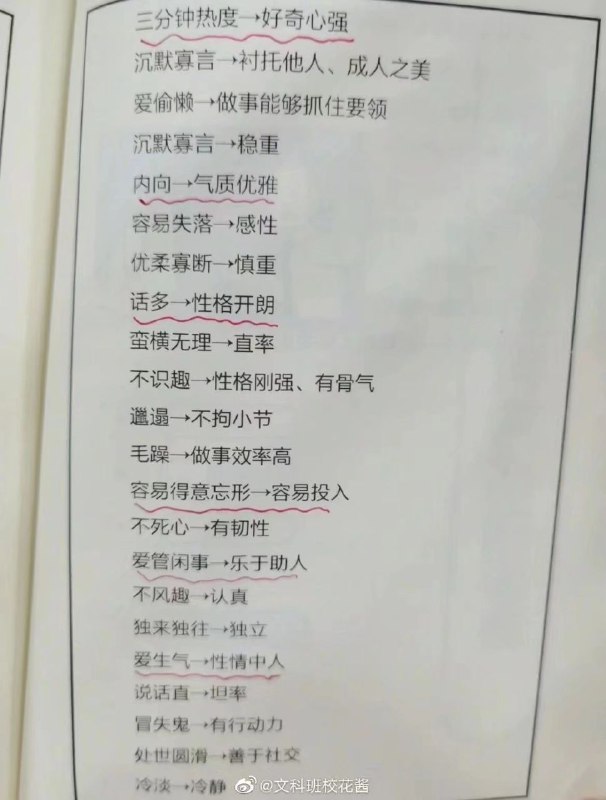 三分钟热度→好奇心强
沉默寡言→衬托他人、成人之美
爱偷懒→做事能够抓住要领
沉默寡言→稳重
内向→气质优雅
容易失落→感性
优柔寡断→慎重
话多→性格开朗
蛮横无理→直率
不识趣→性格刚强、有骨气
邋遢→不拘小节
毛躁→做事效率高
容易得意忘形→容易投入
不死心→有韧性
爱管闲事→乐于助人
不风趣→认真
独来独往→独立
爱生气→性情中人
说话直→坦率
冒失鬼→有行动力
处世圆滑→善于社交
冷淡→冷静
@文科班校花酱